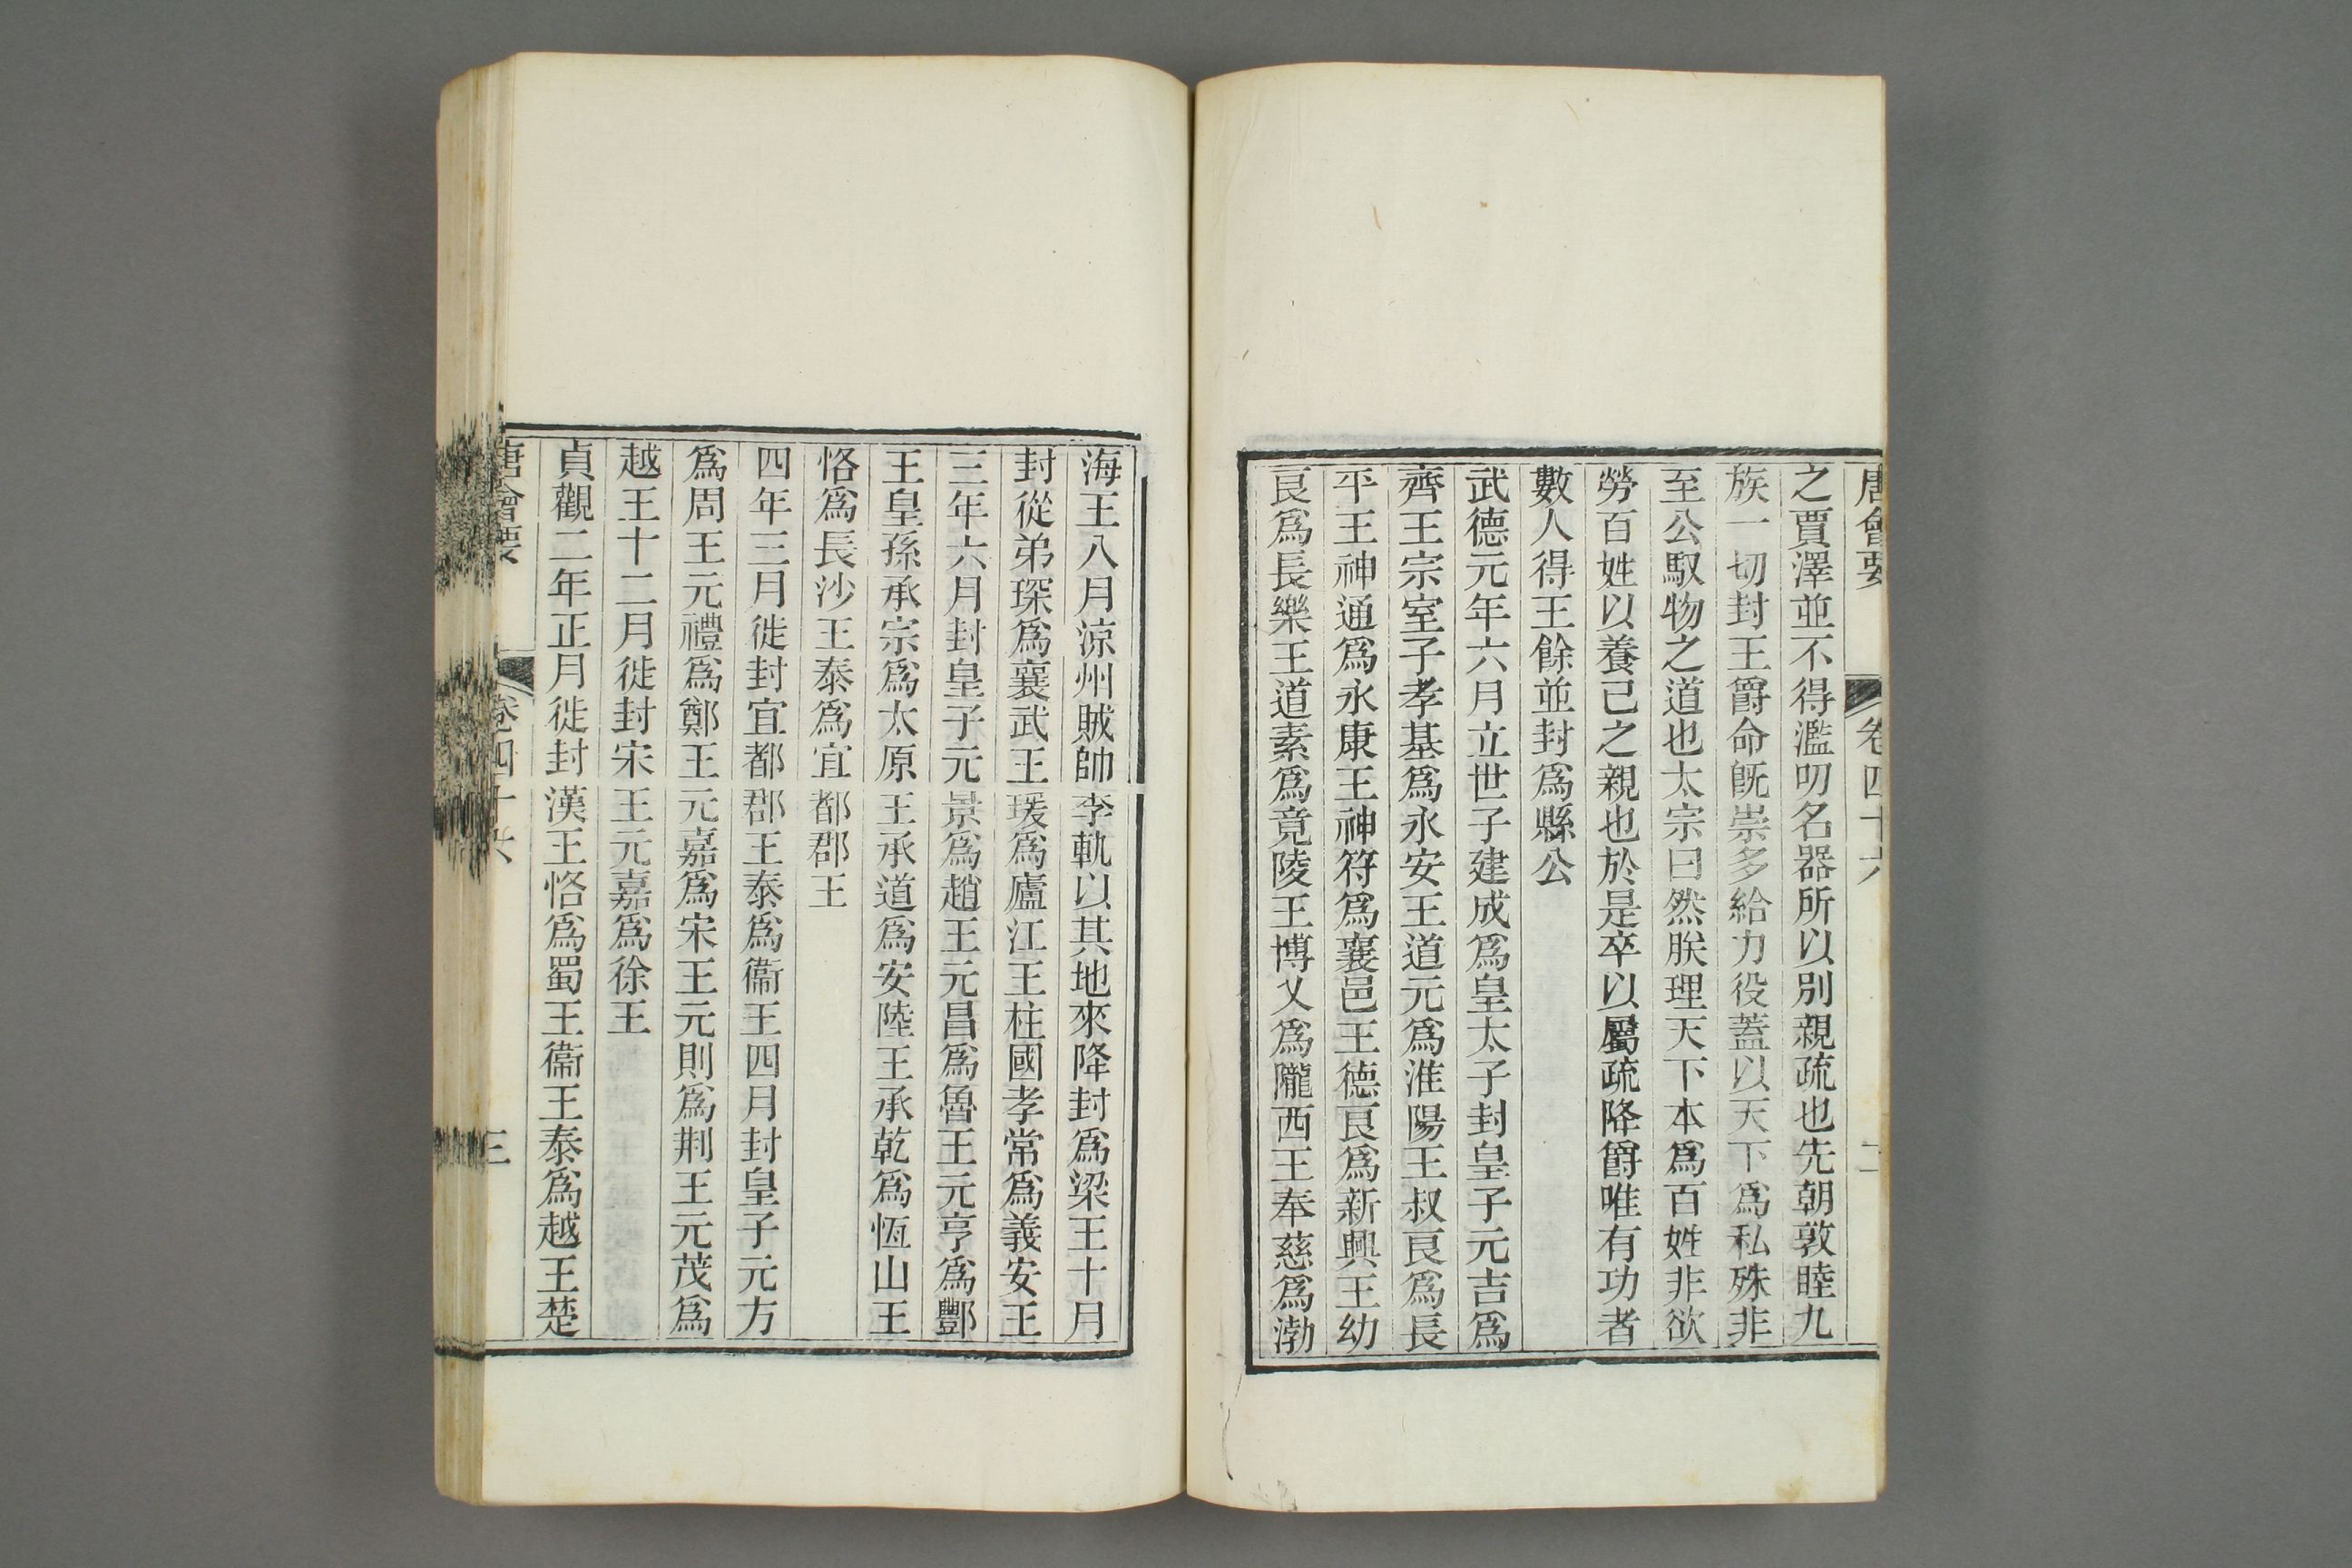 唐會要 卷四十六 二
之賈澤並不得濫叨名器所以別親疏也先朝敦睦九
族一切封王爵命旣崇多給力役蓋以天下爲私殊非
至公馭物之道也太宗曰然朕理天下本爲百姓非欲
勞百姓以養己之親也於是卒以屬疏降爵唯有功者
數人得王餘並封爲縣公
武德元年六月立世子建成爲皇太子封皇子元吉爲
齊王宗室子孝基爲永安王道元爲淮陽王叔良爲長
平王神通爲永康王神符爲襄邑王德良爲新興王幼
良爲長樂王道素爲竟陵王博乂爲隴西王奉慈爲渤
海王八月涼州賊帥李軌以其地來降封爲梁王十月
封從弟琛爲襄武王瑗爲廬江王柱國孝常爲義安王
三年六月封皇子元景爲趙王元昌爲魯王元亨爲酆
王皇孫承宗爲太原王承道爲安陸王承乾爲恆山王
恪爲長沙王泰爲宜都郡王
四年三月徙封宜都郡王泰爲衞王四月封皇子元方
爲周王元禮爲鄭王元嘉爲宋王元則爲荆王元茂爲
越王十二月徙封宋王元嘉爲徐王
貞觀二年正月徙封漢王恪爲蜀王衞王泰爲越王楚
唐會要 卷四十六 三